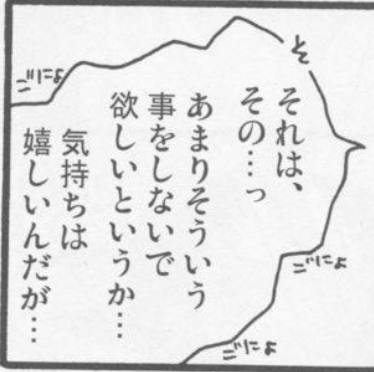 それは、
その…っ
あまりそういう
事をしないで
欲しいというか…
気持ちは
嬉しいんだが…
ごにょ
ごにょ
ごにょ